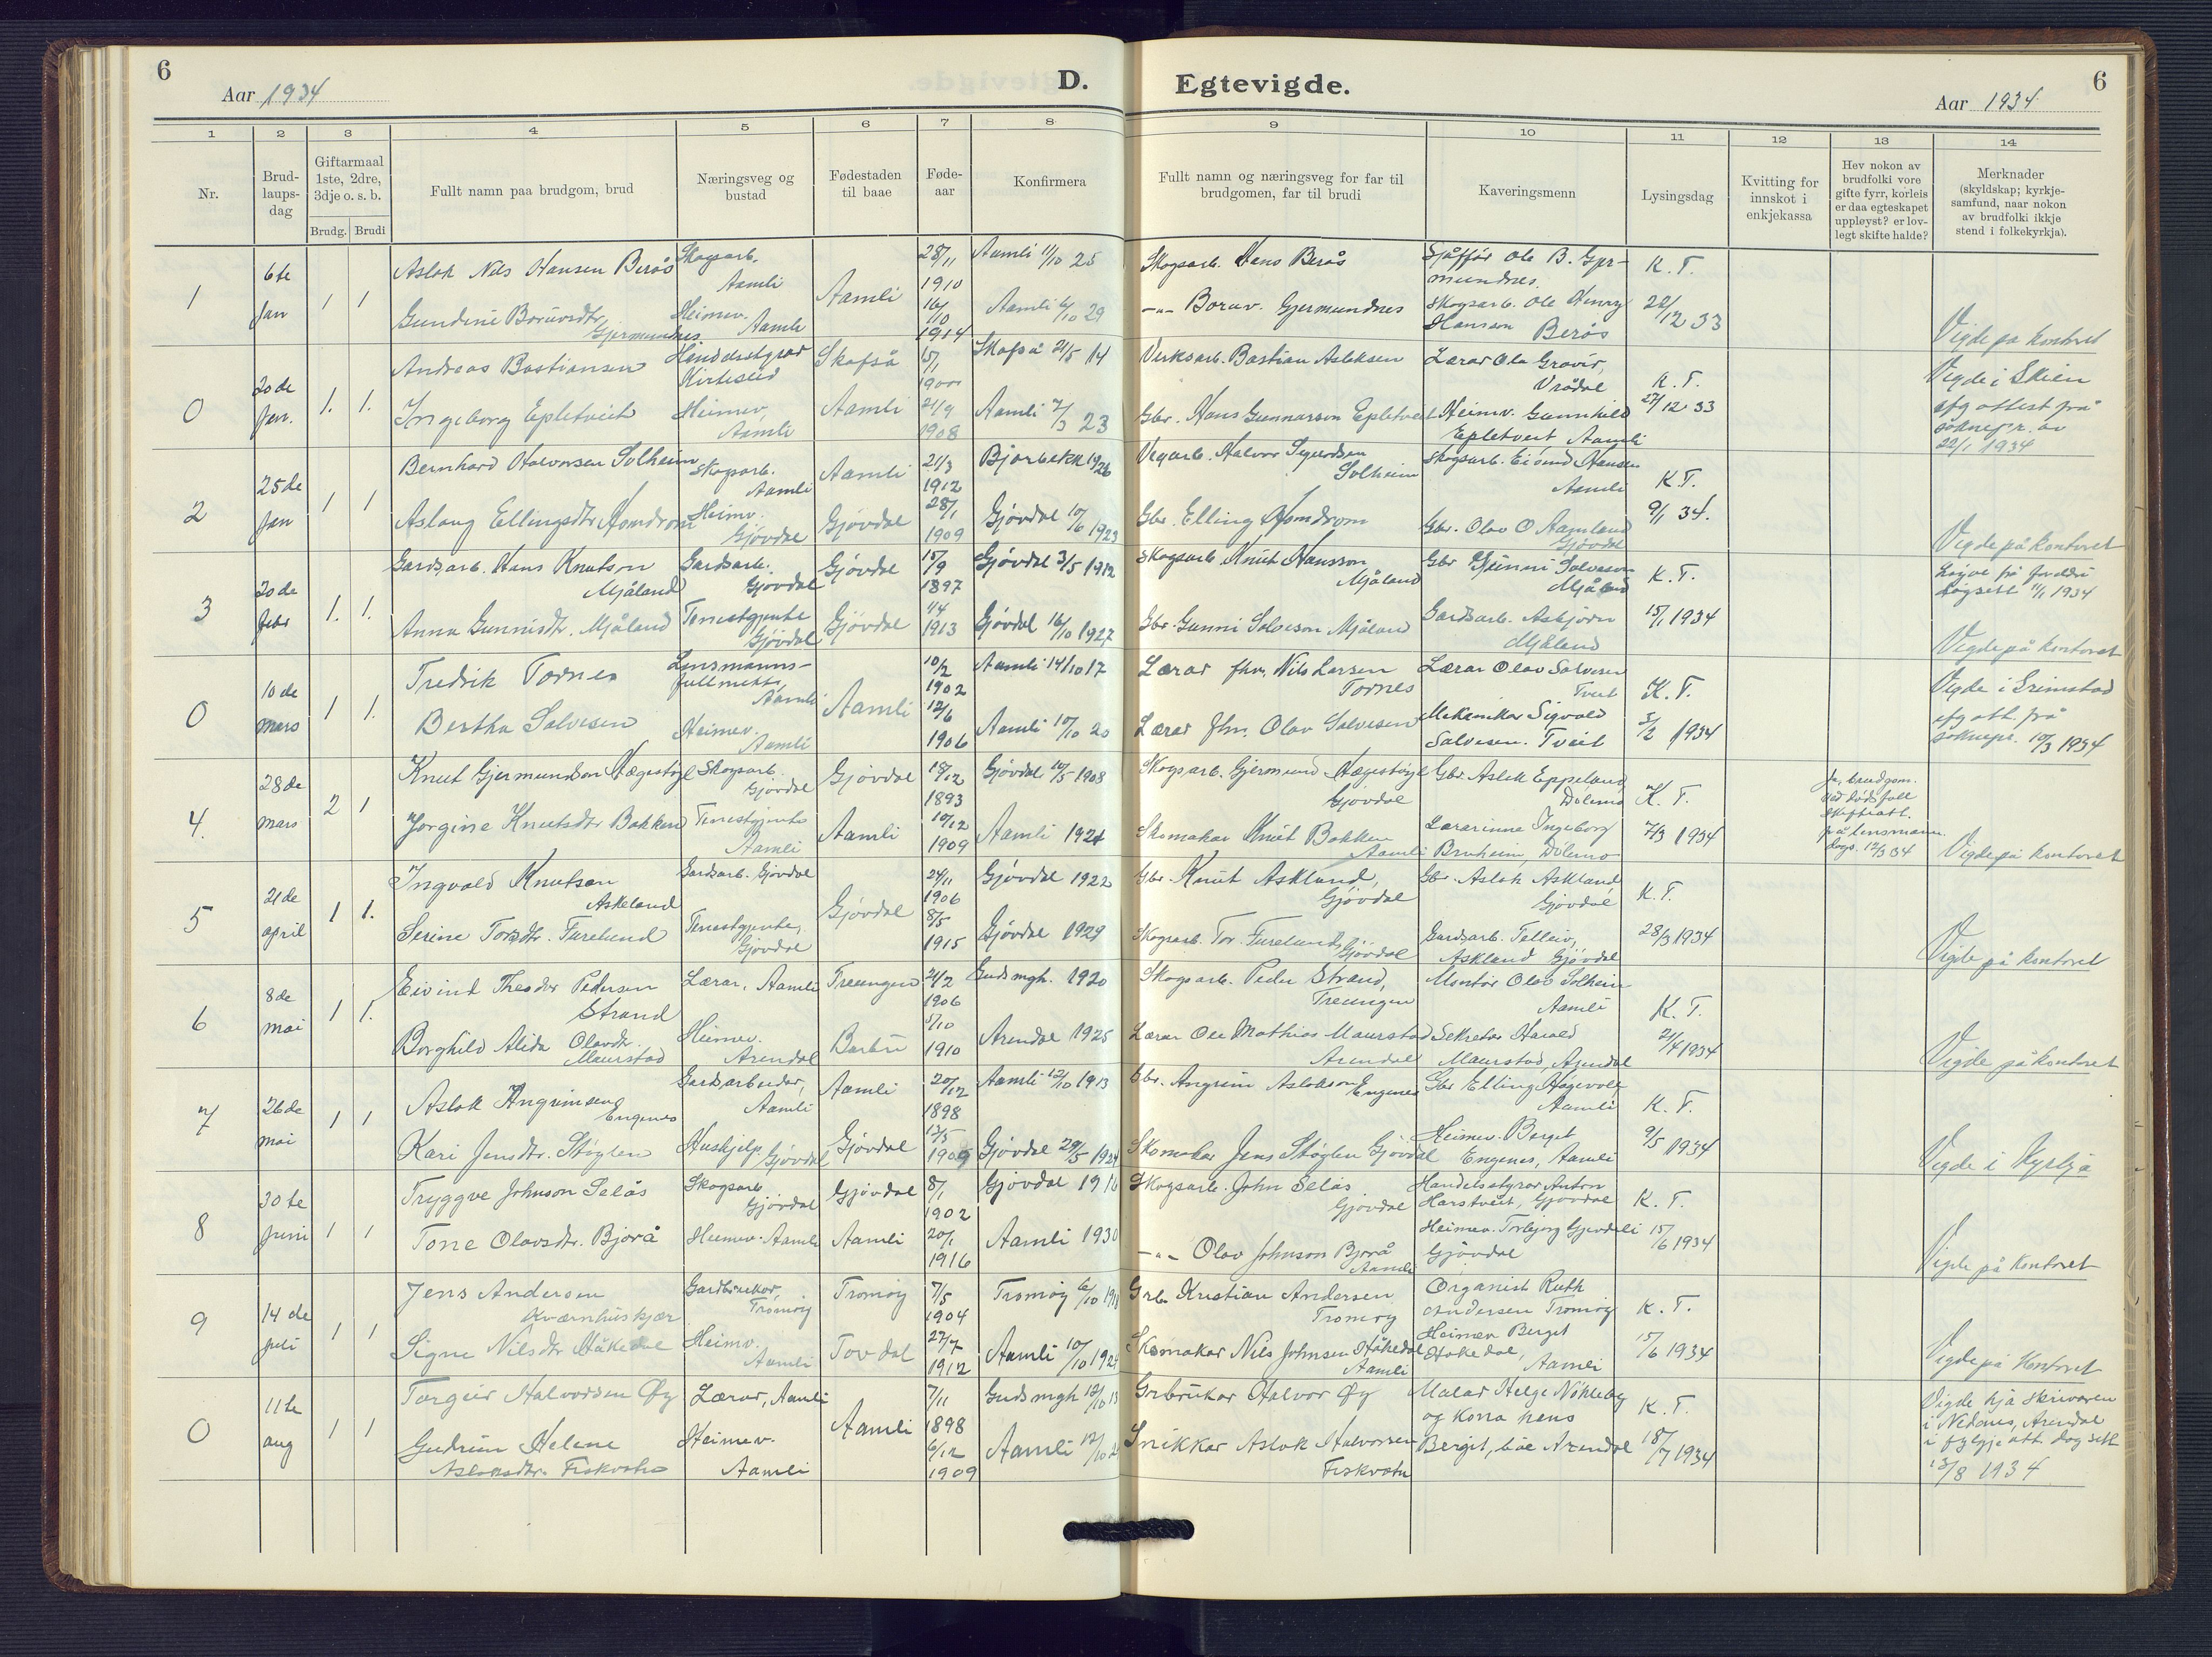 6
Aar 1934
D.
Egtevigde.
Aar 1934
6
1 2 3 4 5 6 7 8 9 10 11 12 13 14
Nr.
Brud-
laups-
dag
Giftarmaal
1ste, 2dre,
3dje o. s. b.
Brudg. Brudi
Fullt namn paa brudgom, brud
Næringsveg og
bustad
Fødestaden
til baae
Føde-
aar
Konfirmera
Fullt namn og næringsveg for far til
brudgomen, far til brudi
Kaveringsmenn
Lysingsdag
Kvitting for
innskot i
enkjekassa
Hev nokon av
brudfolki vore
gifte fyrr, korleis
er daa egteskapet
uppløyst? er lov-
legt skifte halde?
Merknader
(skyldskap; kyrkje-
samfund, naar nokon
av brudfolki ikkje
stend i folkekyrkja).
1
6te
Jan
1 1
Aslak Nils Hansen Berås
Skogsarb.
Aamli
Aamli
28/11
1910
Aamli 11/10 25
Skogsarb. Hans Berås
Sjåffør Ole B. Gjer-
mundnes.
K. T.
Gundine Boruvsdtr.
Gjermundnes
Heimev.
Aamli
16/10
1914
Aamli 6/10 29
-"- Boruv. Gjermundnes
Skogsarb. Ole Henry
Hansen Berås
28/12 33
Vigde på kontoret
0
20de
Jan.
1. 1.
Andreas Bastiansen
Kirteseid
Skafså
15/1
1900
Skafså 21/5 14
Verksarb. Bastian Aslaksen
Lærar Ola Gravir,
Vrådal
K. T.
27/12 33
Ingeborg Epletveit
Heimev,
Aamli
Aamli
21/9
1908
Aamli 7/3 23
Gbr. Hans Gunnarson Epletveit
Heimv. Gunnhild
Epletveit Aamli
Vigde i Skien
efg attest frå
soknepr. av
22/1 1934
2
25de
Jan
1 1
Bernhard Halvorsen Solheim
Skogsarb.
Aamli
Aamli
21/3
1912
Bjorbekk 1926
Vegarb. Halvor Sigurdsen
Solheim
Skogsarb. Eivind Hansen
Aamli
K T.
9/1 34.
Aslaug Ellingsdtr Homdrom
Heimv.
Gjövdal
Gjövdal
28/1
1909
Gjövdal 10/6 1923
Gbr. Elling Homdrom
Gbr. Olav O Aamland
Gjövdal
Vigde på kontoret
3
20de
febr
1. 1.
Gardsarb. Hans Knutson
Mjåland
Gardsarb.
Gjövdal
Gjövdal
15/9
1897
Gjövdal 3/5 1912
Skogsarb Knut Hansson
Mjåland
Gbr Gunni Salveson
Mjåland
K. T.
15/1 1934
Løyve frå foreldri
dagsett 11/1 1934
Anna Gunnisdtr. Mjåland
Tenestgjente
Gjövdal
Gjövdal
1/4
1913
Gjövdal 16/10 1927
Gbr. Gunni Salveson Mjåland
Gardsarb. Asbjörn
Mjåland
Vigde på kontoret
0
10de
mars
1 1.
Fredrik Tornes
Lensmanns-
fullmekt.,
Aamli
Aamli
10/2
1902
Aamli 14/10 17
Lærar fhv. Nils Larsen
Tornes
Lærar Olav Salvesen
Tveit
K. T.
5/2 1934
Bertha Salvesen
Heimev.
Aamli
12/6
1906
Aamli 10/10 20
Lærar fhv. Olav Salvesen
Mekanikar Sigvald
Salvesen. Tveit
Vigde i Grimstad
efg att. frå
soknepr. 10/3 1934
4.
28de
mars
2 1
Knut Gjermundson Hægestøyl
Skogsarb.
Gjövdal
Gjövdal
18/12
1893
Gjövdal 10/5 1908
Skogsarb. Gjermund Hægestøyl
Gjövdal
Gbr. Aslak Eppeland
Dölemo
K. T.
7/3 1934
Ja, brudgom.
ved dödsfall
skifteatt.
frå lensmann
dags. 12/3 34
Jorgine Knutsdtr Bakken
Tenestgjente
Aamli
Aamli
10/12
1909
Aamli 1924
Skomakar Knut Bakken
Aamli
Lærarinne Ingeborg
Bruheim, Dölemo
Vigde på kontoret
5
21de
april
1 1.
Ingvald Knutsen
Askeland
Gardsarb. Gjövdal
Gjövdal
24/11
1906
Gjövdal 1922
Gbr. Knut Askland,
Gjövdal
Gbr. Aslak Askland,
Gjövdal
K. T.
28/3 1934
Serine Torsdtr. Furelund
Tenestgjente,
Gjövdal
8/5
1915
Gjövdal 1929
Skogsarb. Tor Furelund,
Gjövdal
Gardsarb. Telleiv,
Askland Gjövdal
Vigde på kontoret
6
8de
mai
1 1.
Eivind Theodor Pedersen
Strand
Lærar, Aamli
Treungen
21/2
1906
Gudsmgh. 1920
Skogsarb. Peder Strand,
Treungen
Montör Olav Solheim
Aamli
K. T.
21/4 1934
Borghild Alida Olavsdtr.
Maurstad
Heimev.
Arendal
Barbu
5/10
1910
Arendal 1925
Lærar Ole Mathias Maurstad
Arendal
Sekretær Harald
Maurstad, Arendal
Vigde på kontoret
7
26de
mai
1 1
Aslak Angrimsen
Engenes
Gardsarbeidar,
Aamli
Aamli
20/12
1898
Aamli 12/10 1913
Gbr. Angrim Aslakson
Engenes
Gbr Elling Hagevoll
Aamli
K. T.
9/5 1934
Kari Jensdtr. Støylen
Hushjelp.
Gjövdal
Gjövdal
12/5
1909
Gjövdal 29/5 1924
Skomakar Jens Støylen Gjövdal
Heimev. Berget
Engenes, Aamli
Vigde i Kyrkja
8
30te
Juni
1 1
Tryggve Johnson Selås
Skogsarb
Gjövdal
Gjövdal
8/1
1902
Gjövdal 1916
Skogsarb. John Selås
Gjövdal
Handelsstyrar Anton
Harstveit, Gjövdal
K. T.
15/6 1934
Tone Olavsdtr. Bjorå
Heimev. Aamli
Aamli
20/1
1916
Aamli 1930
-"- Olav Johnson Bjorå
Aamli
Heimev. Torbjørg Gjevdeli
Gjövdal
Vigde på kontoret
9
14de
juli
1 1
Jens Andersen
Kværnhuskjær
Gardbrukar,
Tromøy
Tromøy
7/5
1904
Tromøy 6/10 19
Grbr. Kristian Andersen
Tromøy
Organist Ruth
Andersen Tromøy
K. T.
15/6 1934
Signe Nilsdtr Håkedal
Heimv.
Aamli
Tovdal
27/7
1912
Aamli 10/10 192
Skomakar Nils Johnsen Håkedal
Aamli
Heimev Berget
Håkedal,
Aamli
Vigde på kontoret
0
11te
aug
1 1
Torgeir Halvorsen Øy
Lærar, Aamli
Aamli
7/11
1898
Gudsmgh 12/10 13
Grbrukar Halvor Øy
Malar Helge Nökleby
og kona hans
Bergit, båe Arendal
K. T.
18/7 1934
Gudrun Helene
Aslaksdtr. Fiskvatn
Heimev.
Aamli
6/12
1909
Aamli 12/10 2
Snikkar Aslak Halvorsen
Fiskvatn
Vigde hjå skrivaren
i Nedenes, Arendal
i fylgje att. dagsett
13/8 1934